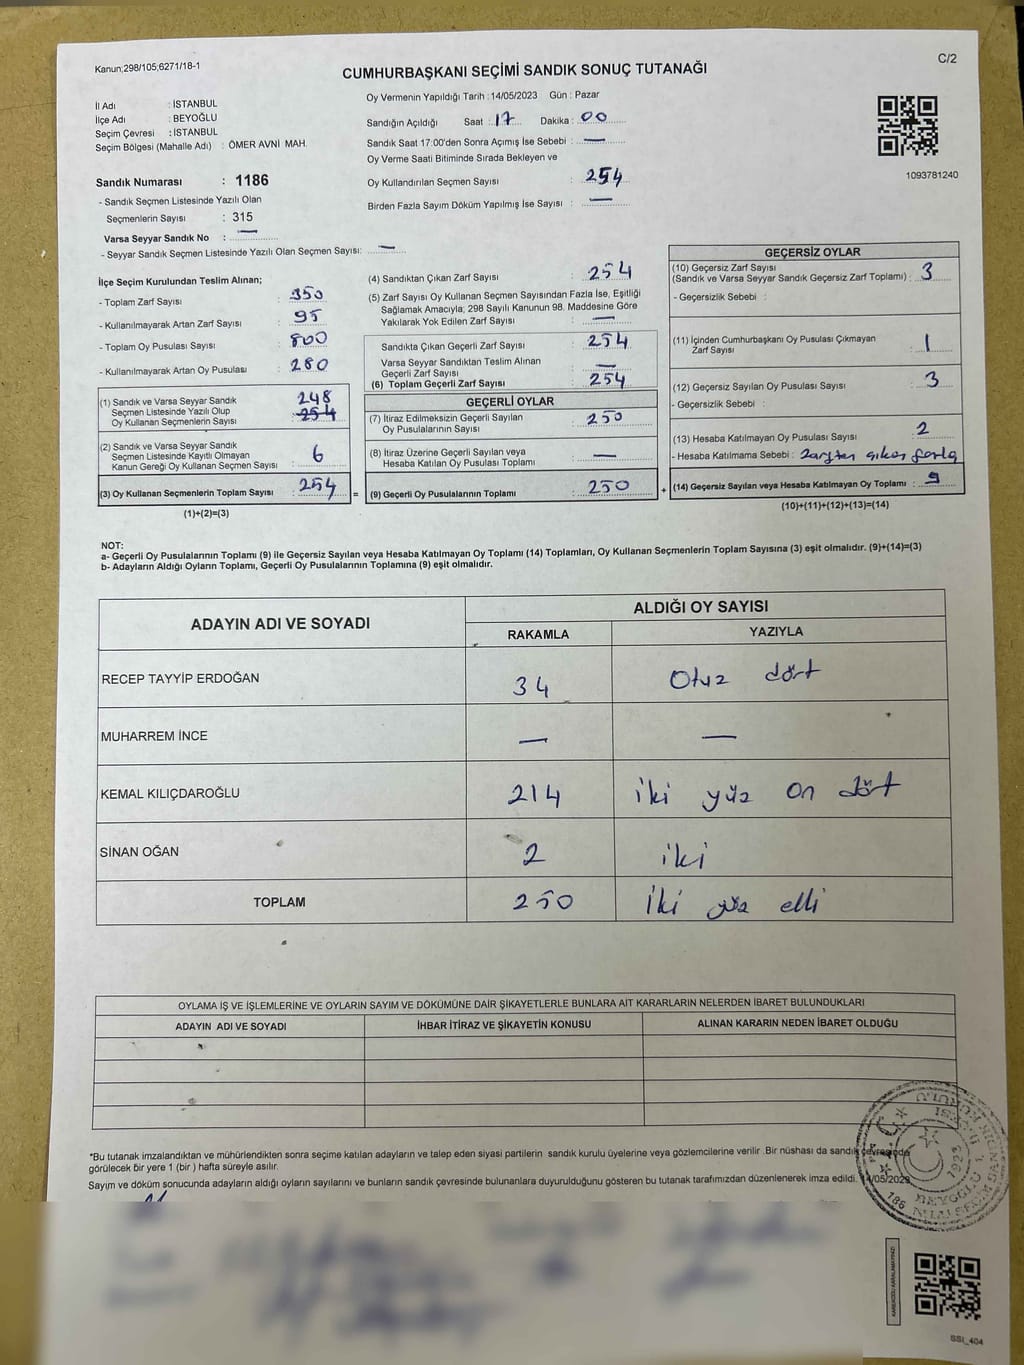 Kanun;298/105;6271/18-1
C/2
CUMHURBAŞKANI SEÇİMİ SANDIK SONUÇ TUTANAĞI
İl Adı : İSTANBUL
İlçe Adı : BEYOĞLU
Seçim Çevresi : İSTANBUL
Seçim Bölgesi (Mahalle Adı) : ÖMER AVNİ MAH.
Sandık Numarası : 1186
- Sandık Seçmen Listesinde Yazılı Olan
Seçmenlerin Sayısı : 315
Varsa Seyyar Sandık No : —
- Seyyar Sandık Seçmen Listesinde Yazılı Olan Seçmen Sayısı: —
Oy Vermenin Yapıldığı Tarih :14/05/2023 Gün : Pazar
Sandığın Açıldığı Saat : 17 Dakika : 00
Sandık Saat 17:00'den Sonra Açımış İse Sebebi : —
Oy Verme Saati Bitiminde Sırada Bekleyen ve
Oy Kullandırılan Seçmen Sayısı : 254
Birden Fazla Sayım Döküm Yapılmış İse Sayısı : —
1093781240
İlçe Seçim Kurulundan Teslim Alınan;
- Toplam Zarf Sayısı : 350
- Kullanılmayarak Artan Zarf Sayısı : 95
- Toplam Oy Pusulası Sayısı : 800
- Kullanılmayarak Artan Oy Pusulası : 280
(1) Sandık ve Varsa Seyyar Sandık 248
Seçmen Listesinde Yazılı Olup 254
Oy Kullanan Seçmenlerin Sayısı
(2) Sandık ve Varsa Seyyar Sandık
Seçmen Listesinde Kayıtlı Olmayan
Kanun Gereği Oy Kullanan Seçmen Sayısı : 6
(3) Oy Kullanan Seçmenlerin Toplam Sayısı : 254 =
(1)+(2)=(3)
(4) Sandıktan Çıkan Zarf Sayısı : 254
(5) Zarf Sayısı Oy Kullanan Seçmen Sayısından Fazla İse, Eşitliği
Sağlamak Amacıyla; 298 Sayılı Kanunun 98. Maddesine Göre
Yakılarak Yok Edilen Zarf Sayısı : —
Sandıkta Çıkan Geçerli Zarf Sayısı : 254
Varsa Seyyar Sandıktan Teslim Alınan
Geçerli Zarf Sayısı : —
(6) Toplam Geçerli Zarf Sayısı : 254
GEÇERLİ OYLAR
(7) İtiraz Edilmeksizin Geçerli Sayılan
Oy Pusulalarının Sayısı : 250
(8) İtiraz Üzerine Geçerli Sayılan veya
Hesaba Katılan Oy Pusulası Toplamı : —
(9) Geçerli Oy Pusulalarının Toplamı : 250 +
GEÇERSİZ OYLAR
(10) Geçersiz Zarf Sayısı
(Sandık ve Varsa Seyyar Sandık Geçersiz Zarf Toplamı) : 3
- Geçersizlik Sebebi :
(11) İçinden Cumhurbaşkanı Oy Pusulası Çıkmayan
Zarf Sayısı : 1
(12) Geçersiz Sayılan Oy Pusulası Sayısı : 3
- Geçersizlik Sebebi :
(13) Hesaba Katılmayan Oy Pusulası Sayısı : 2
- Hesaba Katılmama Sebebi : Zarftan çıkan fazla
(14) Geçersiz Sayılan veya Hesaba Katılmayan Oy Toplamı : 9
(10)+(11)+(12)+(13)=(14)
NOT:
a- Geçerli Oy Pusulalarının Toplamı (9) ile Geçersiz Sayılan veya Hesaba Katılmayan Oy Toplamı (14) Toplamları, Oy Kullanan Seçmenlerin Toplam Sayısına (3) eşit olmalıdır. (9)+(14)=(3)
b- Adayların Aldığı Oyların Toplamı, Geçerli Oy Pusulalarının Toplamına (9) eşit olmalıdır.
ADAYIN ADI VE SOYADI
ALDIĞI OY SAYISI
RAKAMLA YAZIYLA
RECEP TAYYİP ERDOĞAN 34 Otuz dört
MUHARREM İNCE — —
KEMAL KILIÇDAROĞLU 214 iki yüz on dört
SİNAN OĞAN 2 iki
TOPLAM 250 iki yüz elli
OYLAMA İŞ VE İŞLEMLERİNE VE OYLARIN SAYIM VE DÖKÜMÜNE DAİR ŞİKAYETLERLE BUNLARA AİT KARARLARIN NELERDEN İBARET BULUNDUKLARI
ADAYIN ADI VE SOYADI İHBAR İTİRAZ VE ŞİKAYETİN KONUSU ALINAN KARARIN NEDEN İBARET OLDUĞU
*Bu tutanak imzalandıktan ve mühürlendikten sonra seçime katılan adayların ve talep eden siyasi partilerin sandık kurulu üyelerine veya gözlemcilerine verilir .Bir nüshası da sandık çevresinde
görülecek bir yere 1 (bir ) hafta süreyle asılır.
Sayım ve döküm sonucunda adayların aldığı oyların sayılarını ve bunların sandık çevresinde bulunanlara duyurulduğunu gösteren bu tutanak tarafımızdan düzenlenerek imza edildi. 14/05/2023
SSI_404